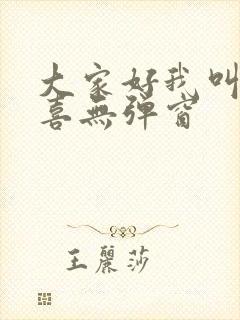 大家好我叫
喜無彈窗
王麗莎